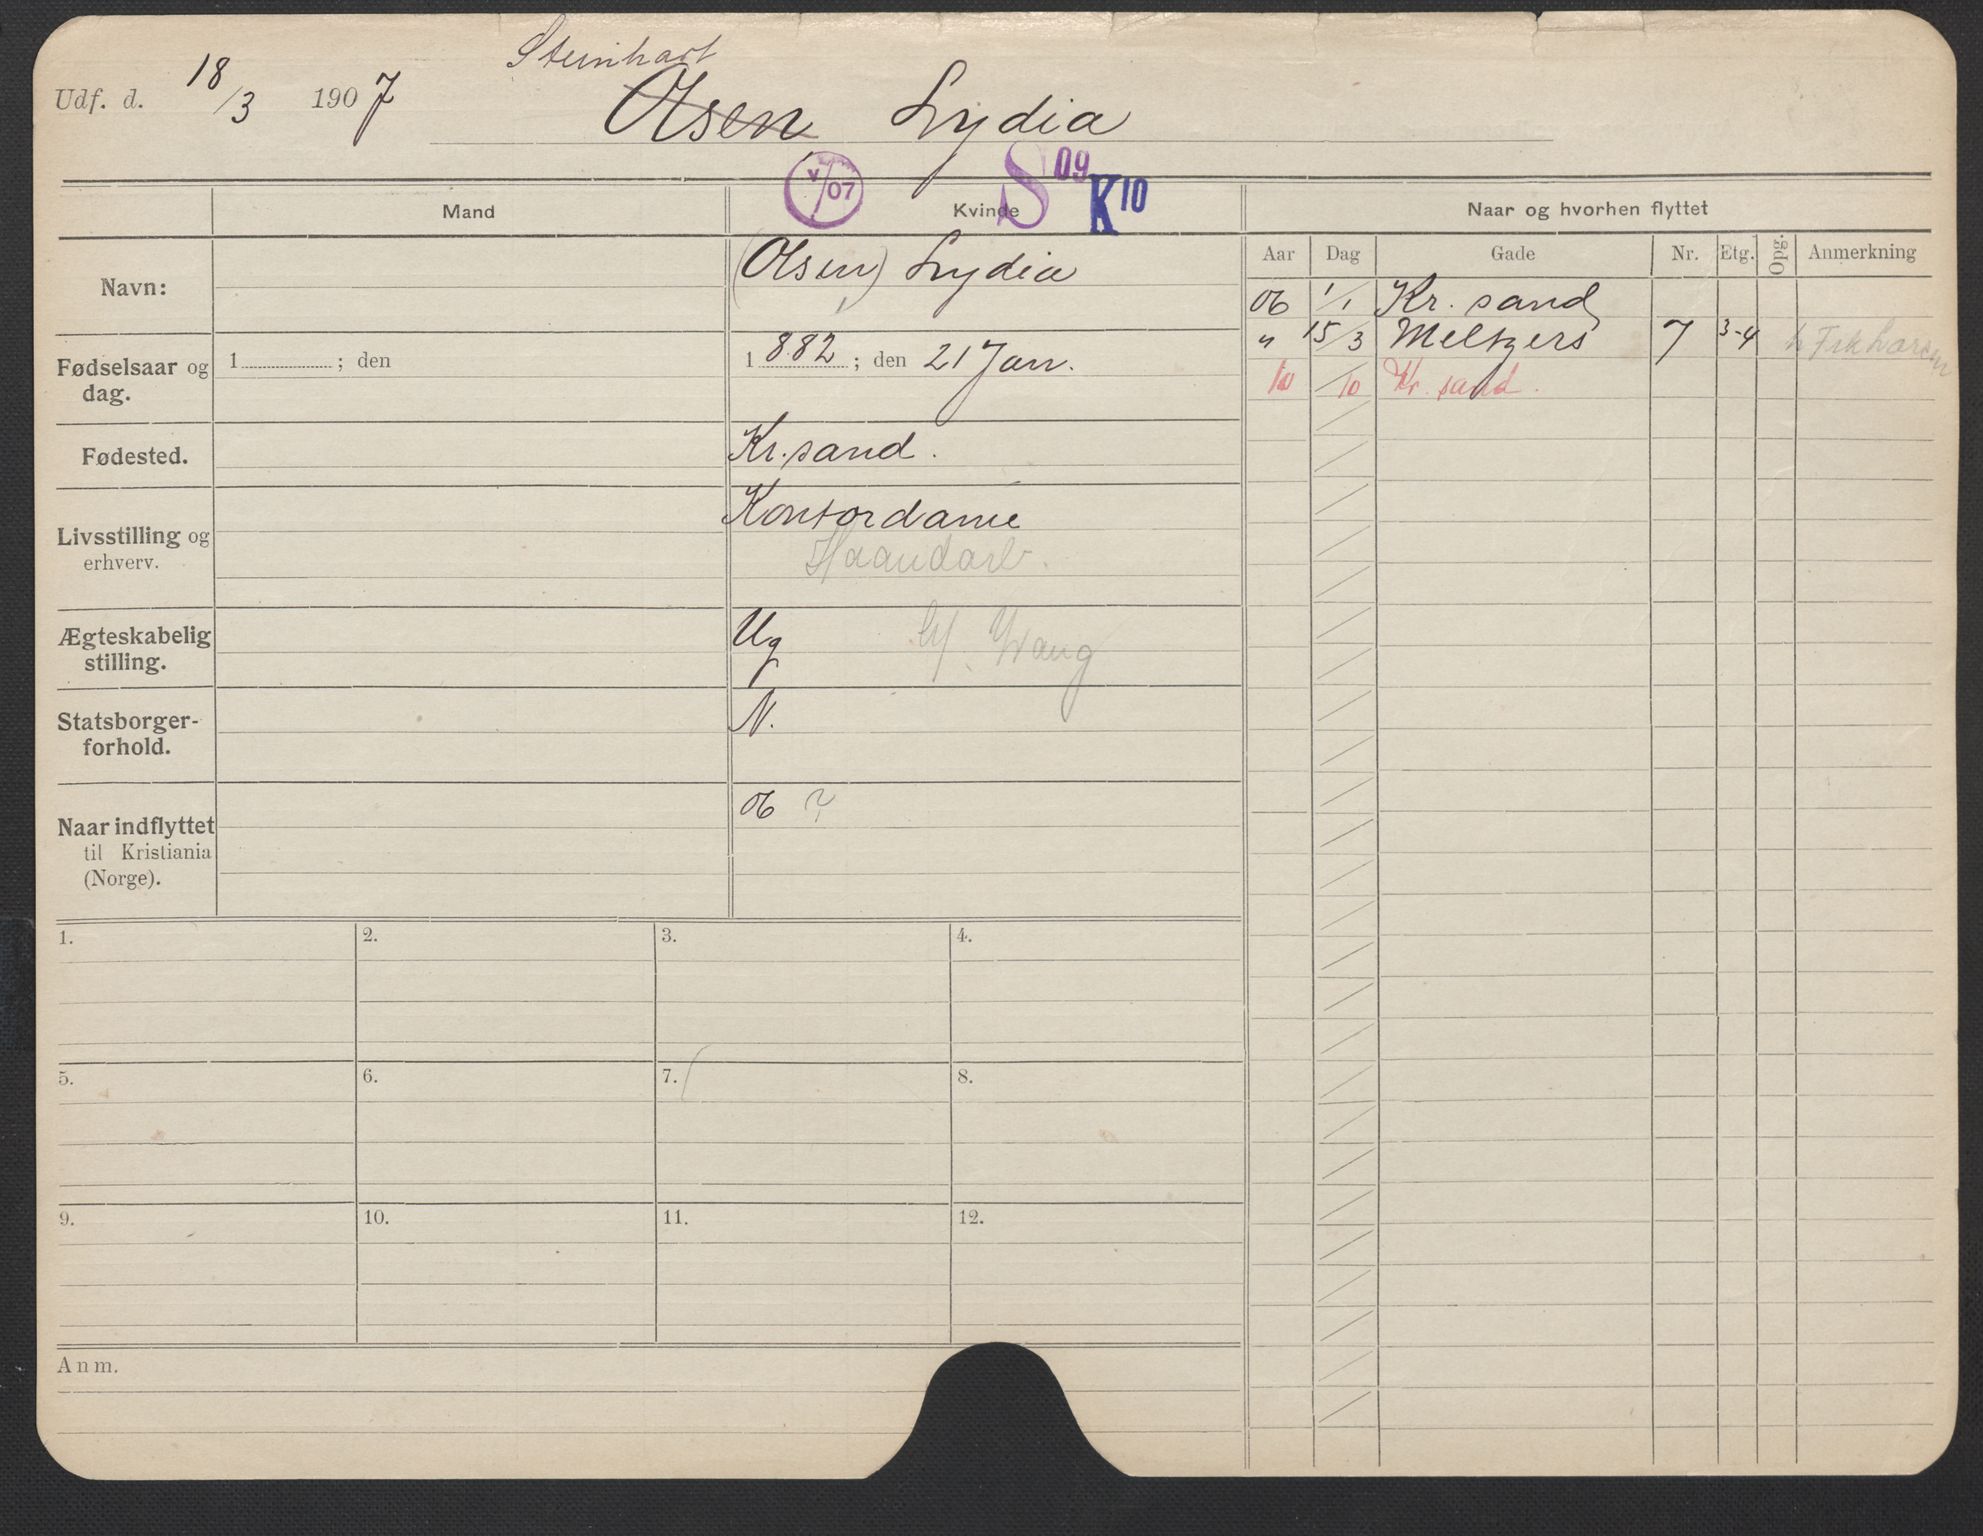 Steinhart
Udf. d. 18/3 1907 Olsen, Lydia
V/07 S 09 K 10
Mand Kvinde Naar og hvorhen flyttet
Aar Dag Gade Nr. Etg. Opg. Anmerkning
Navn: (Olsen) Lydia
06 1/1 Kr. sand
" 15/3 Meltzers 7 3-4 h Frk Larsen
10 /10 Kr. sand.
Fødselsaar og dag. 1 ; den 1882 ; den 21 Jan.
Fødested. Kr.sand.
Livsstilling og erhverv. Kontordame
Haandarb.
Ægteskabelig stilling. Ug
Statsborger-
forhold. N.
Naar indflyttet
til Kristiania
(Norge). 06 ?
1. 2. 3. 4.
5. 6. 7. 8.
9. 10. 11. 12.
Anm.